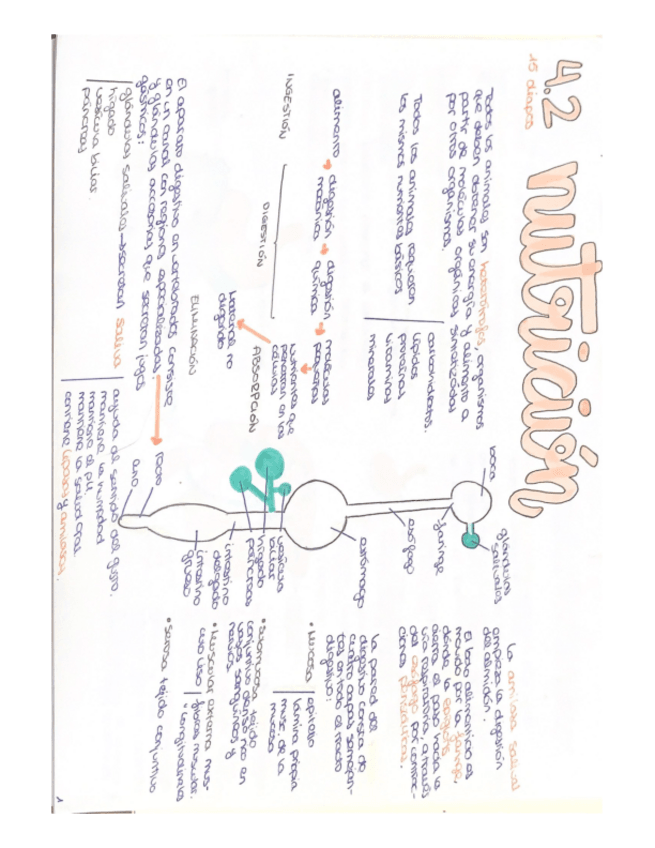 4.2 nutrición
15 diapos
Todos los animales son heterótrofos, organismos
que deben obtener su energía y alimento a
partir de moléculas orgánicas sintetizadas
por otros organismos.
Todos los animales requieren
los mismos nutrientes básicos
carbohidratos.
lípidos
proteínas
vitaminas
minerales
alimento → digestión mecánica → digestión química → moléculas pequeñas
nutrientes que
penetran en las
células
Material no
digerido
INGESTIÓN
DIGESTIÓN
ABSORPCIÓN
ELIMINACIÓN
El aparato digestivo en vertebrados consiste
en un canal con regiones especializadas
y glándulas accesorias que secretan jugos
gástricos:
glándulas salivales → secretan saliva
hígado
vesícula biliar
páncreas
ayuda al sentido del gusto.
mantiene la humedad
mantiene el pH.
mantiene la salud oral
contiene y amilasa.
boca
glándulas
salivales
faringe
esófago
estómago
vesícula
biliar
hígado
páncreas
intestino
delgado
intestino
grueso
recto
ano
La amilasa salival
empieza la digestión
del almidón.
El bolo alimenticio es
movido por la faringe,
dónde la epiglotis
cierra el paso hacia la
vía respiratoria, a través
del esófago por contrac-
ciones peristálticas.
La pared del
digestivo consta de
cuatro capas semejan-
tes en todo el tracto
digestivo:
• Mucosa
epitelio
lámina propia
musc. de la
mucosa
• Submucosa tejido
conjuntivo denso rico en
vasos sanguíneos y
nervios
• Muscular externa mus-
culo liso
fibras muscular.
" longitudinales
• Serosa tejido conjuntivo
1